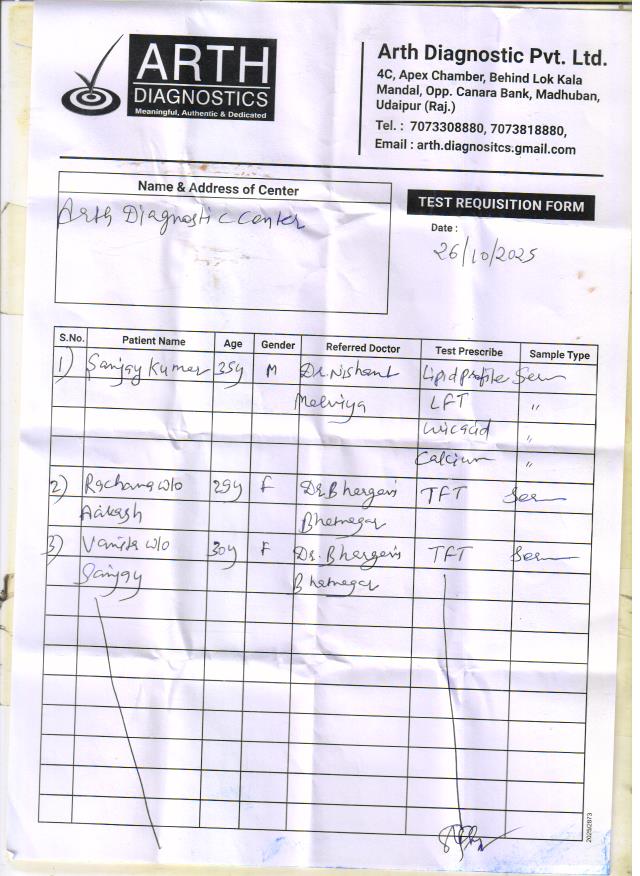 ARTH
DIAGNOSTICS
Meaningful, Authentic & Dedicated
Arth Diagnostic Pvt. Ltd.
4C, Apex Chamber, Behind Lok Kala
Mandal, Opp. Canara Bank, Madhuban,
Udaipur (Raj.)
Tel. : 7073308880, 7073818880,
Email : arth.diagnositcs.gmail.com
Name & Address of Center
Arth Diagnostic Center
TEST REQUISITION FORM
Date :
26/10/2025
S.No. Patient Name Age Gender Referred Doctor Test Prescribe Sample Type
1) Sanjay Kumar 35y M Dr. Nishant Lipid profile Serum
Melviya LFT "
Uric acid "
Calcium "
2) Rachana w/o 29y F Dr. Bhargavi TFT Serum
Aakash Bhatnagar
3) Vanita w/o 30y F Dr. Bhargavi TFT Serum
Sanjay Bhatnagar
2025/2873